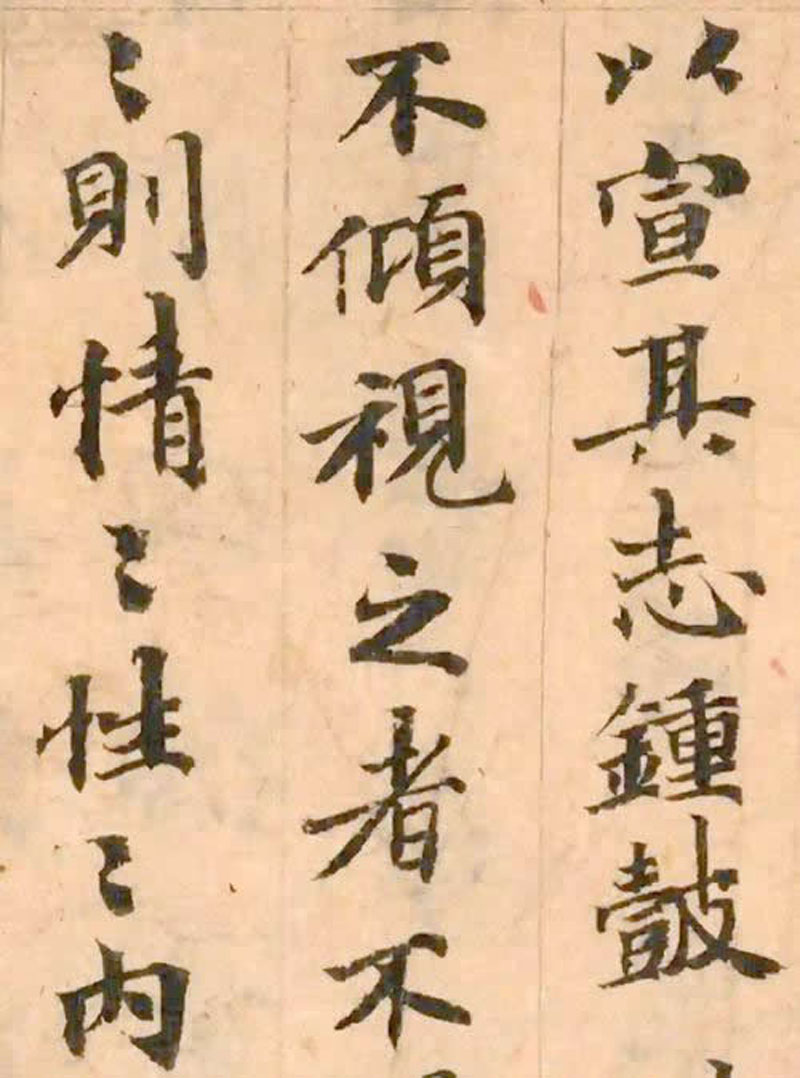 以宣其志鍾鼓
不傾視之者不
〻則情〻性〻内